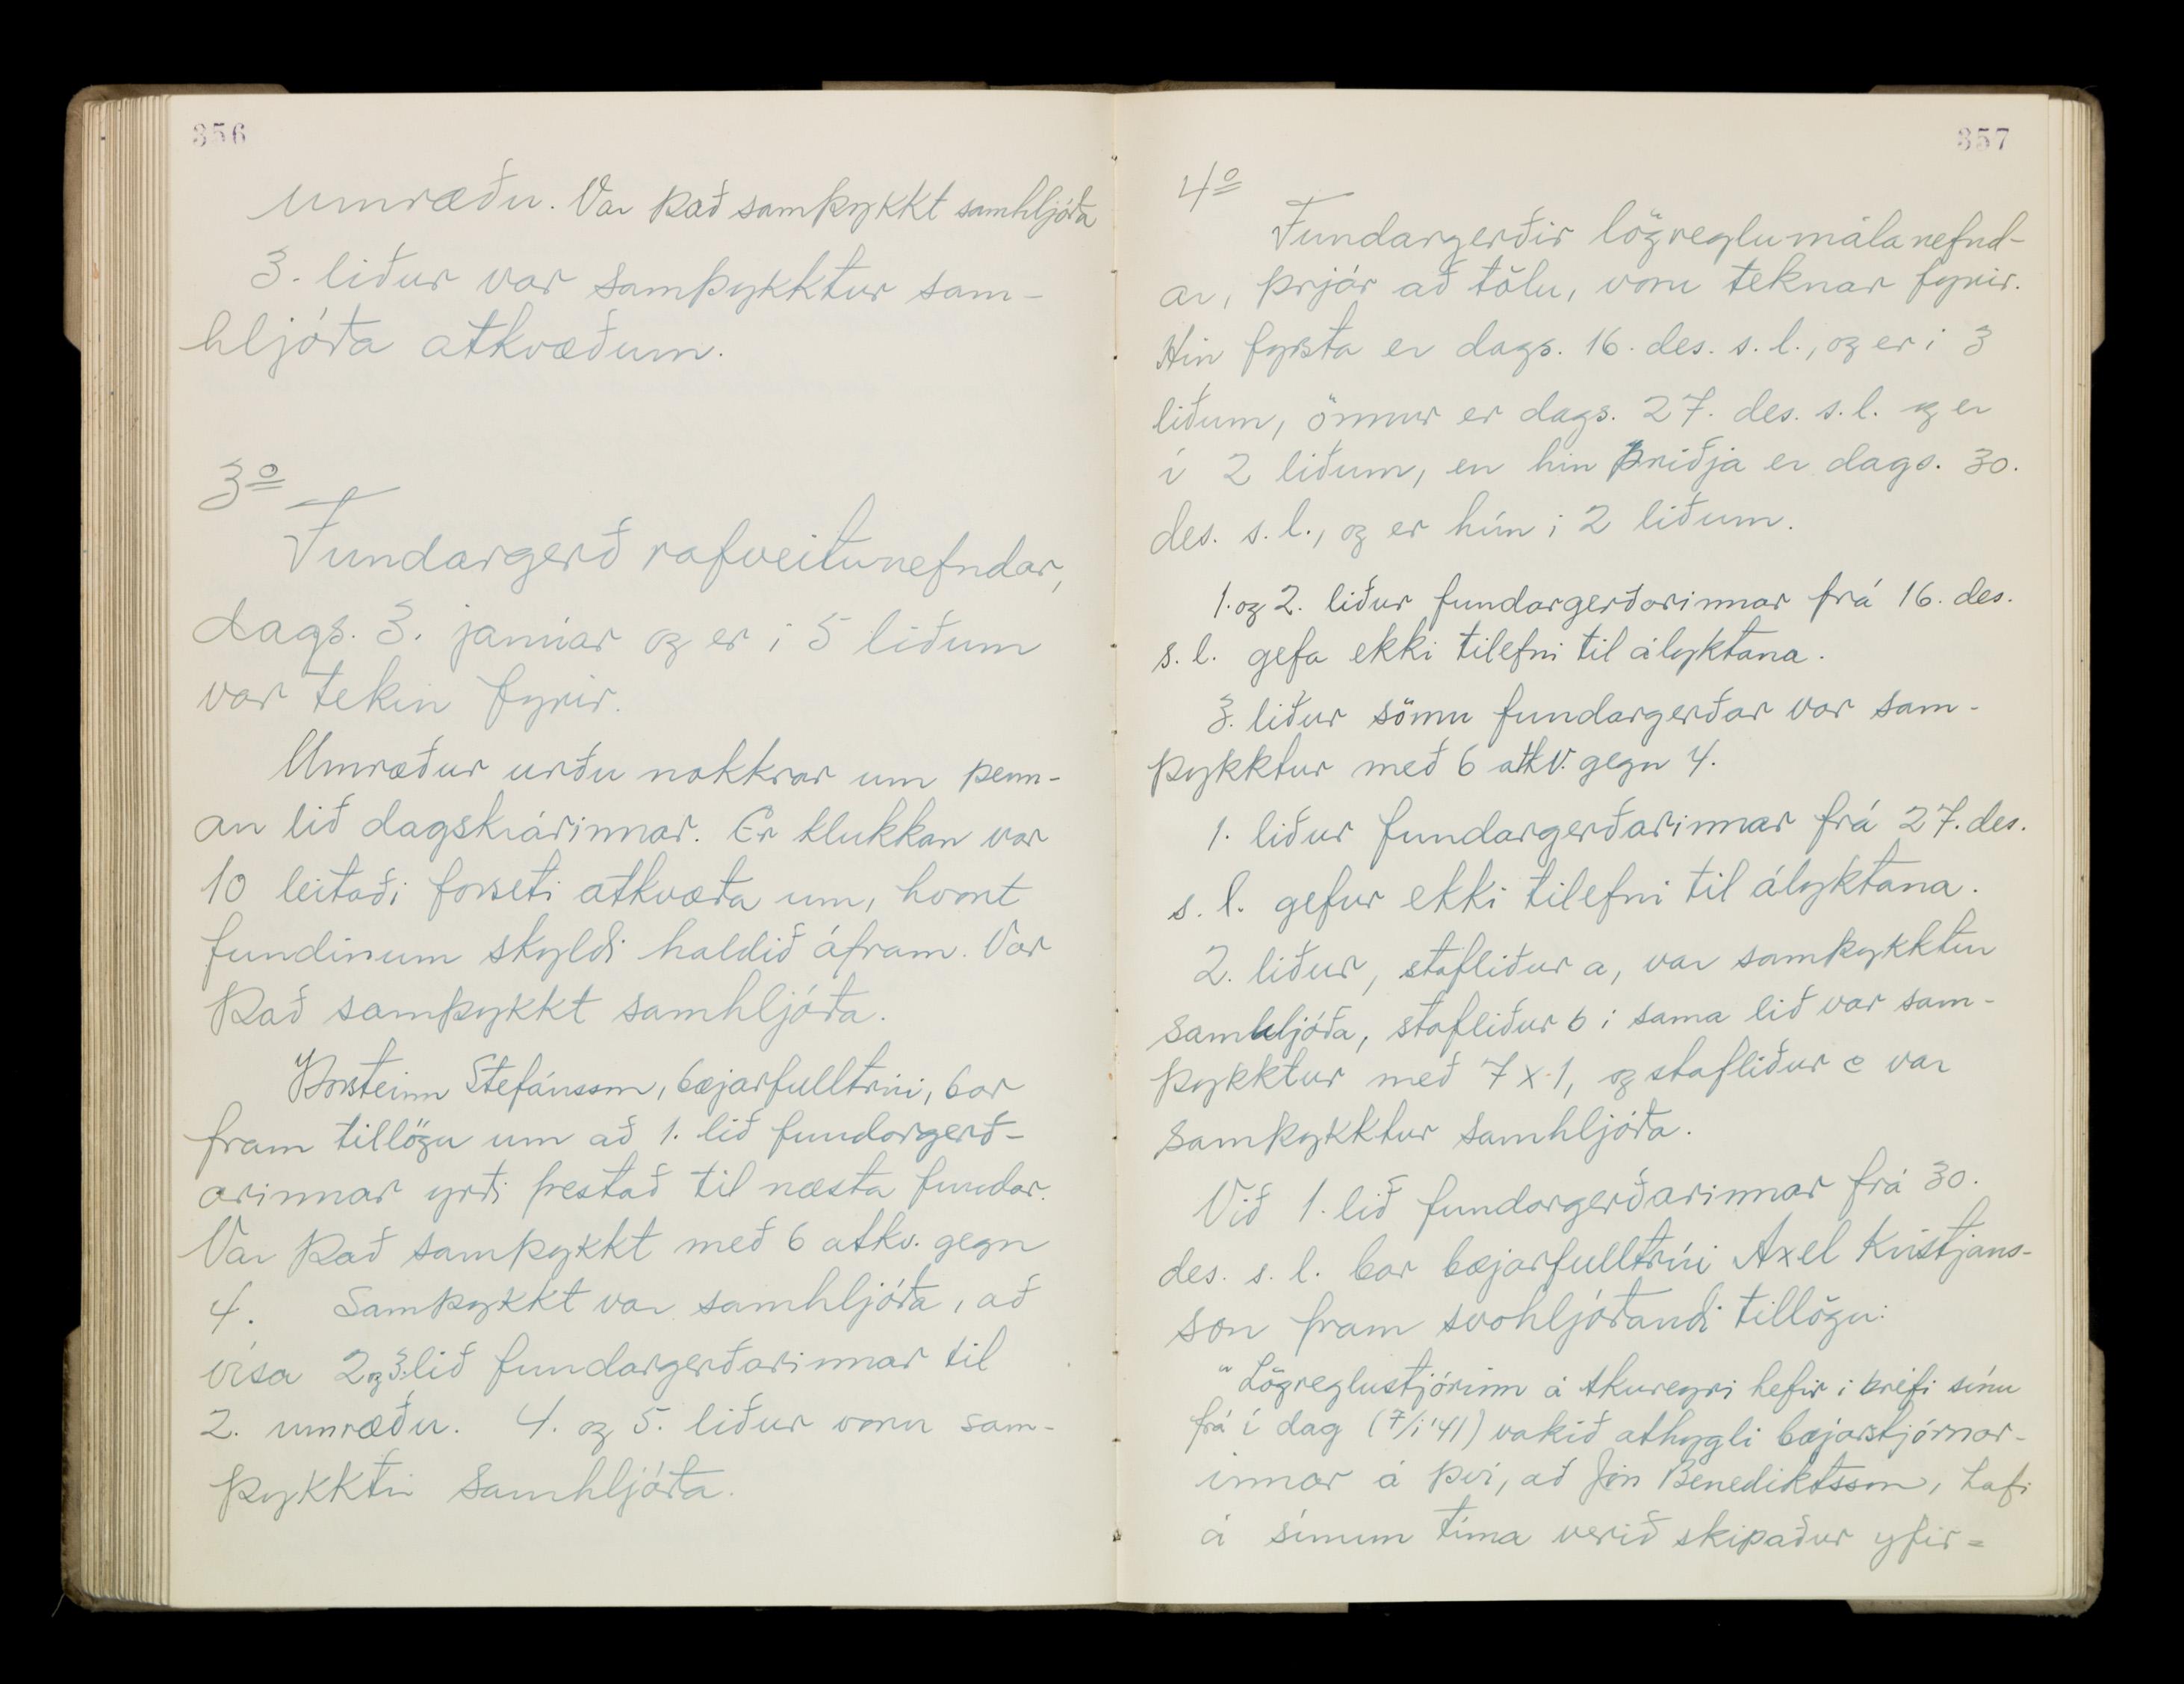 356
umræðu. Var það samþykkt samhljóða
3. liður var samþykktur sam-
hljóða atkvæðum.
3º
Fundargerð rafveitunefndar,
dags. 3. janúar og er í 5 liðum
var tekin fyrir.
Umræður urðu nokkrar um þenn-
an lið dagskrárinnar. Er klukkan var
10 leitaði forseti atkvæða um, hvort
fundinum skyldi haldið áfram. Var
það samþykkt samhljóða.
Þorsteinn Stefánsson, bæjarfulltrúi, bar
fram tillögu um að 1. lið fundargerð-
arinnar yrði frestað til næsta fundar.
Var það samþykkt með 6 atkv. gegn
4. Samþykkt var samhljóða, að
vísa 2. og 3. lið fundargerðarinnar til
2. umræðu. 4. og 5. liður voru sam-
þykktir samhljóða.
357
4º
Fundargerðir lögreglumálanefnd-
ar, þrjár að tölu, voru teknar fyrir.
Hin fyrsta er dags. 16. des. s.l., og er í 3
liðum, önnur er dags. 27. des. s.l. og er
í 2 liðum, en hin þriðja er dags. 30.
des. s.l., og er hún í 2 liðum.
1. og 2. liður fundargerðarinnar frá 16. des.
s.l. gefa ekki tilefni til ályktana.
3. liður sömu fundargerðar var sam-
þykktur með 6 atkv. gegn 4.
1. liður fundargerðarinnar frá 27. des.
s.l. gefur ekki tilefni til ályktana.
2. liður, stafliður a, var samþykktur
samhljóða, stafliður b í sama lið var sam-
þykktur með 7 x 1, og stafliður c var
samþykktur samhljóða.
Við 1. lið fundargerðarinnar frá 30.
des. s.l. bar bæjarfulltrúi Axel Kristjáns-
son fram svohljóðandi tillögu:
"Lögreglustjórinn á Akureyri hefir í bréfi sínu
frá í dag (7/1 '41) vakið athygli bæjarstjórnar-
innar á því, að Jón Benediktsson, hafi
á sínum tíma verið skipaður yfir=